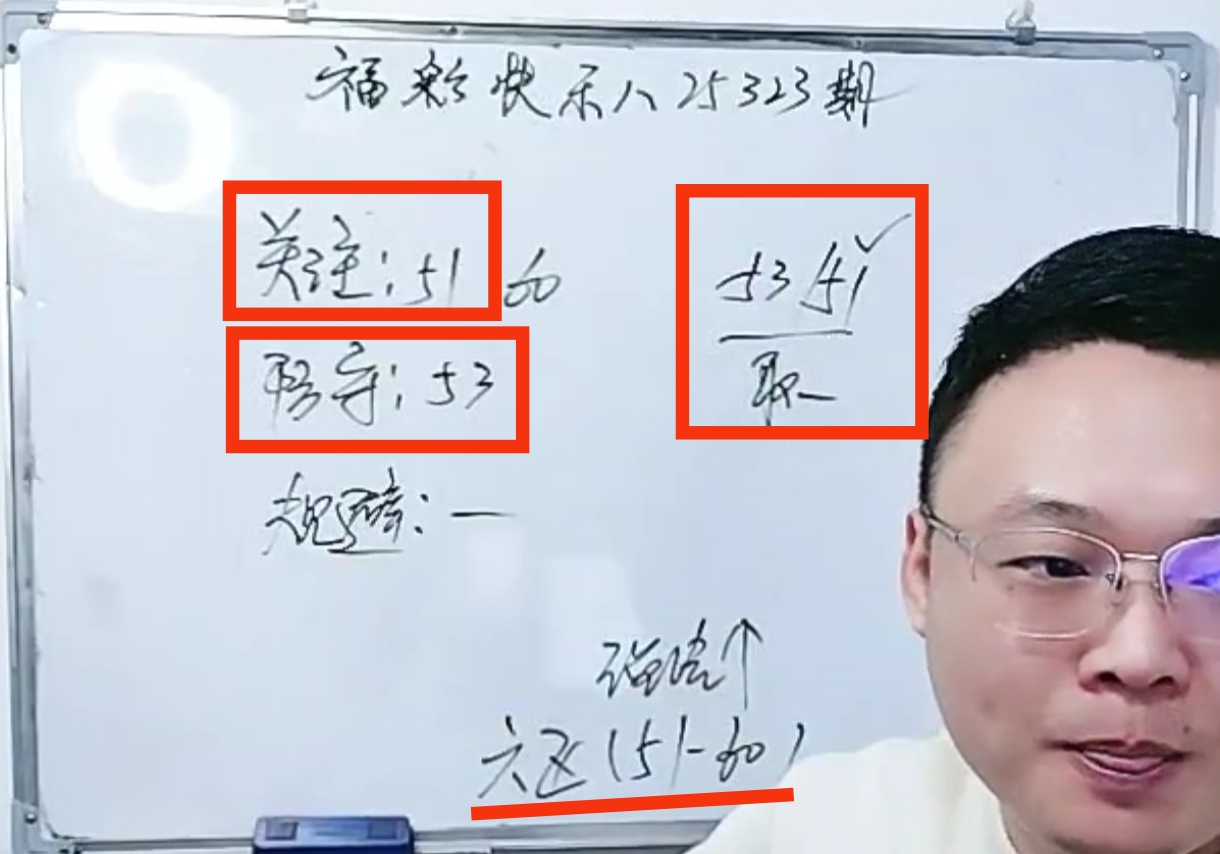 福彩快乐八25323期
关注:51 60
防守:53
规避:一
53 51✓
取一
强势↑
六区(51-60)